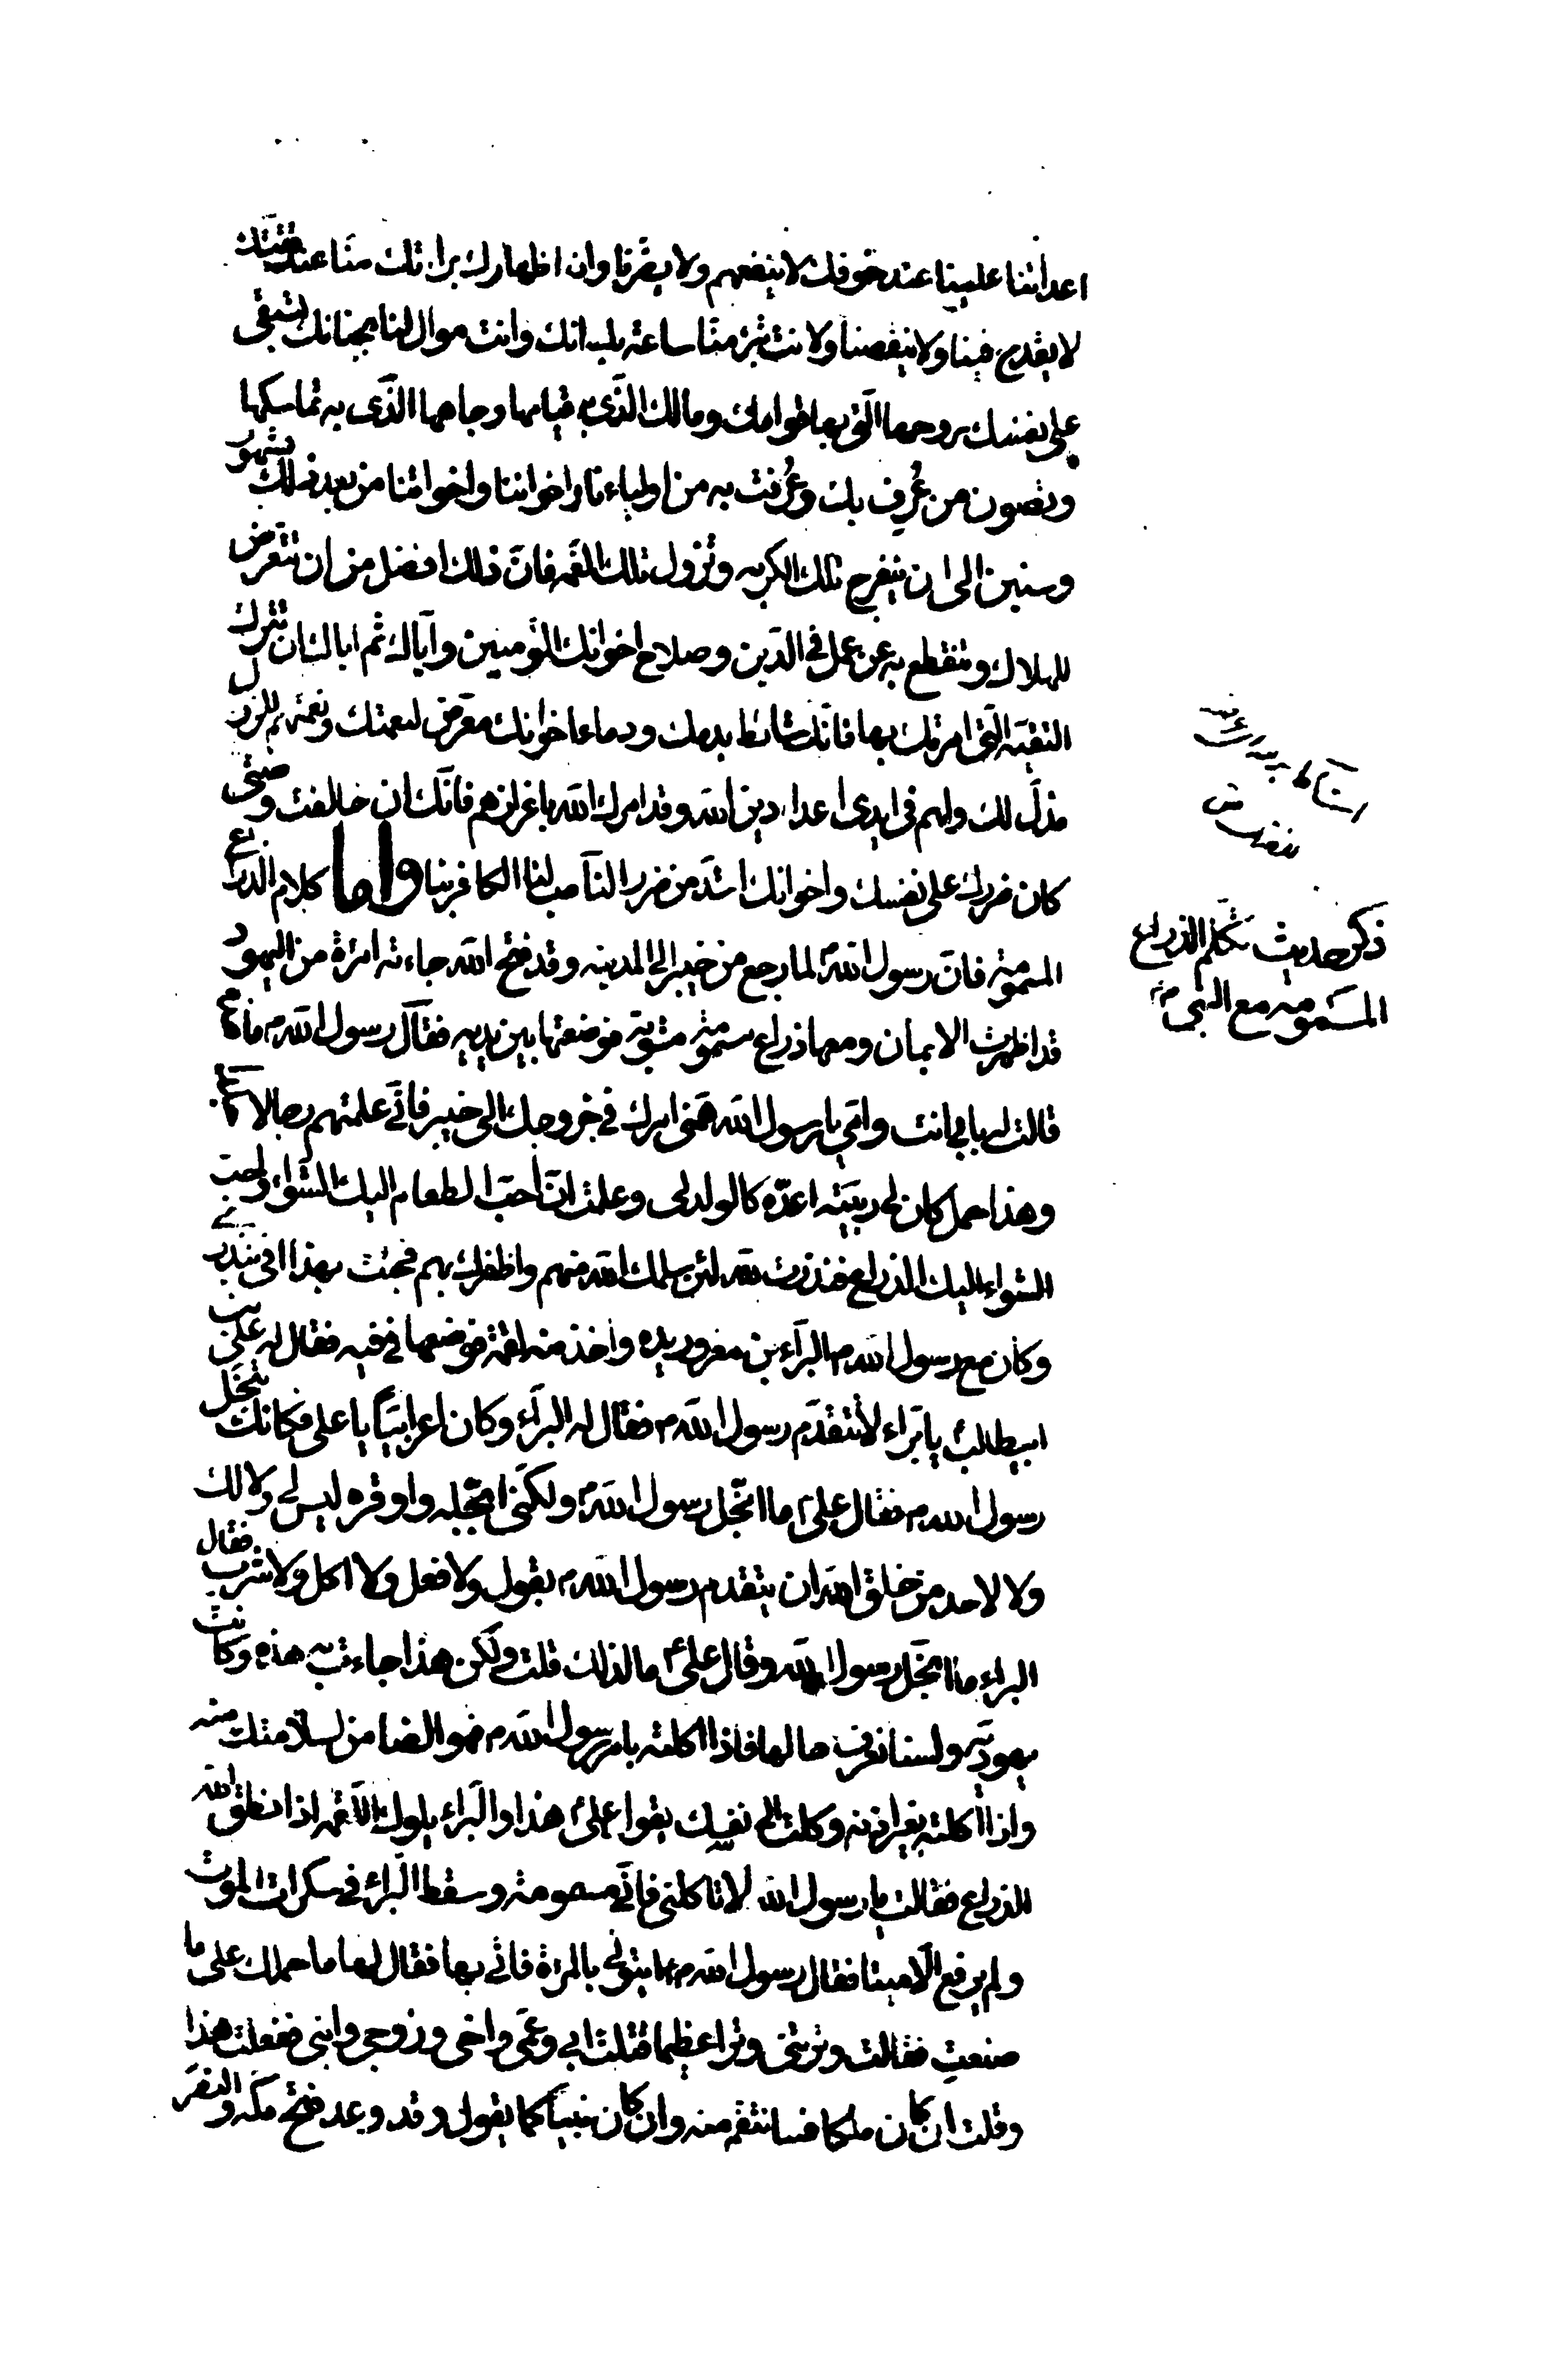 اعدائنا علينا عند خوفك لا ينفعهم ولا يضرنا وان اظهارك براءتك منا عند تقيتك
لا يقدح فينا ولا ينقصنا ولا نتبرئ منا ساعة بلسانك وانت موال لنا بجنانك لتبقى
على نفسك روحها التي بها قوامك ومالك الذي به قيامها وجاهها الذي به تماسكها
وتصون من عُرِف بك وعُرفت به من اولياءنا واخواننا واخواتنا من بعد ذلك بشهور
وسنين الى ان ينفرج تلك الكربه وتزول تلك الغمه فان ذلك افضل من ان تتعرض
للهلاك وتنقطع به عن عمل في الدين وصلاح اخوانك المؤمنين واياك ثم اياك ان تترك
التقيه التي امرتك بها فانك شائط بدمك ودماء اخوانك معرض لنعمتك ونعمتهم للزوال
مذل لك ولهم في ايدي اعداء دين الله وقد امرك الله باعزازهم فانك ان خالفت وصيتي
كان ضررك على نفسك واخوانك اشد من ضرر الناصب لنا الكافر بنا واما كلام الذراع
المسمومة فان رسول الله ص لما رجع من خيبر الى المدينه وقد فتح الله جاءته امرأة من اليهود
قد اظهرت الايمان ومعها ذراع مسمومة مشوية فوضعتها بين يديه فقال رسول الله ص ما هذه
قالت له بابي انت وامي يا رسول الله همني امرك في خروجك الى خيبر فاني علمتهم رجالا
وهذا حمل كان لي ربيته اعده كالولد لي وعلمت ان احب الطعام اليك الشواء واحب
الشواء اليك الذراع فنذرت لله لئن سلمك الله منهم واظفرك بهم فجئت بهذا افي بنذري
وكان مع رسول الله ص البراء بن معرور يده واخذ منه لقمة فوضعها في فيه فقال له علي بن
ابيطالب يا براء لا تتقدم رسول الله ص فقال له البراء وكان اعرابيا يا علي فكانك تبخل
رسول الله ص فقال علي ع ما ابخل رسول الله ص ولكني ابجله واوقره ليس لي ولا لك
ولا لاحد من خلق الله ان يتقدم رسول الله ص بقول ولا فعل ولا اكل ولا شرب فقال
البراء ما ابخل رسول الله وقال علي ع ما لذلك قلت ولكن هذا جاءت به هذه وكانت
يهودية ولسنا نعرف حالها فاذا اكلته بامر رسول الله ص فهو الضامن لسلامتك منه
واذا اكلته بغير اذنه وكلت الى نفسك يقول علي ع هذا والبراء يلوك اللقمه اذ انطق الله
الذراع فقالت يا رسول الله لا تاكلني فاني مسمومة وسقط البراء في سكرات الموت
ولم يرفع الا ميتا فقال رسول الله ص ايتوني بالمرأة فاتي بها فقال لها ما حملك على ما
صنعت فقالت وترتني وترا عظيما قتلت ابي وعمي واخي وزوجي وابني ففعلت هذا
وقلت ان كان ملكا فسانتقم منه وان كان نبيا كما يقول وقد وعد فتح مكه والنصر
ذكر حديث تكلم الذراع
المسمومه مع النبي ص